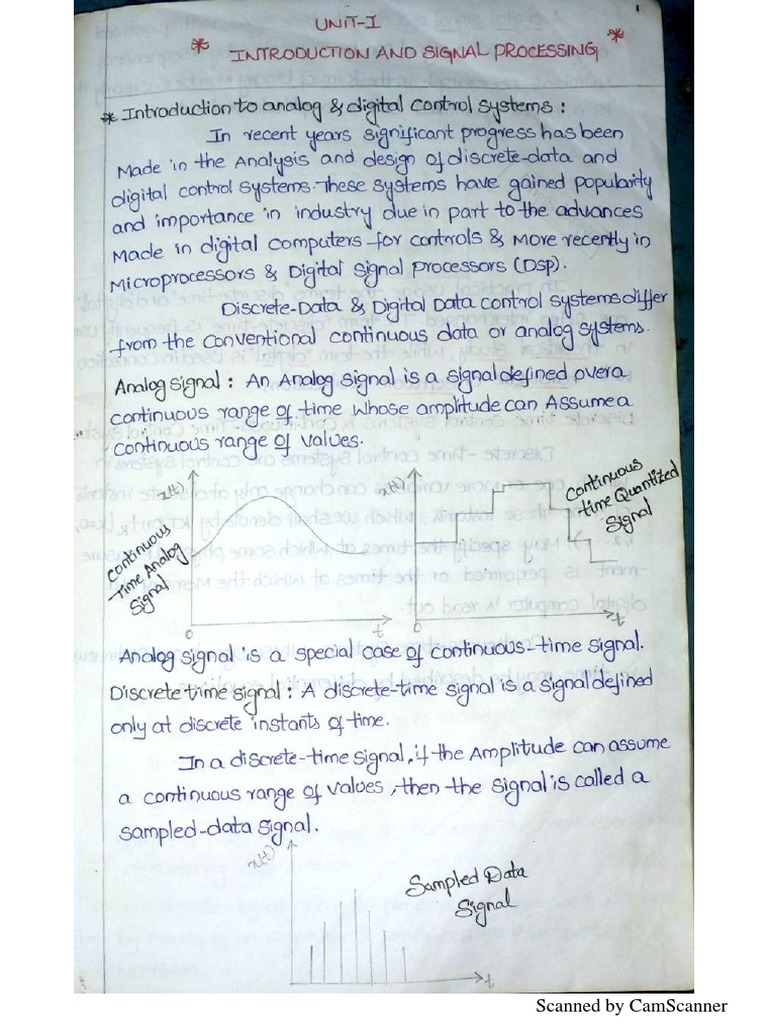 1
UNIT-I
* INTRODUCTION AND SIGNAL PROCESSING *
* Introduction to analog & digital control systems :
In recent years significant progress has been
Made in the Analysis and design of discrete-data and
digital control systems. These systems have gained popularity
and importance in industry due in part to the advances
Made in digital computers for controls & More recently in
Microprocessors & Digital Signal Processors (DSP).
Discrete-Data & Digital Data control systems differ
from the conventional continuous data or analog systems.
Analog signal : An Analog signal is a signal defined over a
continuous range of time whose amplitude can Assume a
continuous range of values.
x(t)
Continuous
Time Analog
Signal
0
t
x(t)
Continuous
time Quantized
Signal
0
t
Analog signal is a special case of continuous-time signal.
Discrete time signal : A discrete-time signal is a signal defined
only at discrete instants of time.
In a discrete-time signal, if the Amplitude can assume
a continuous range of values, then the signal is called a
sampled-data signal.
x(t)
Sampled Data
Signal
t
Scanned by CamScanner